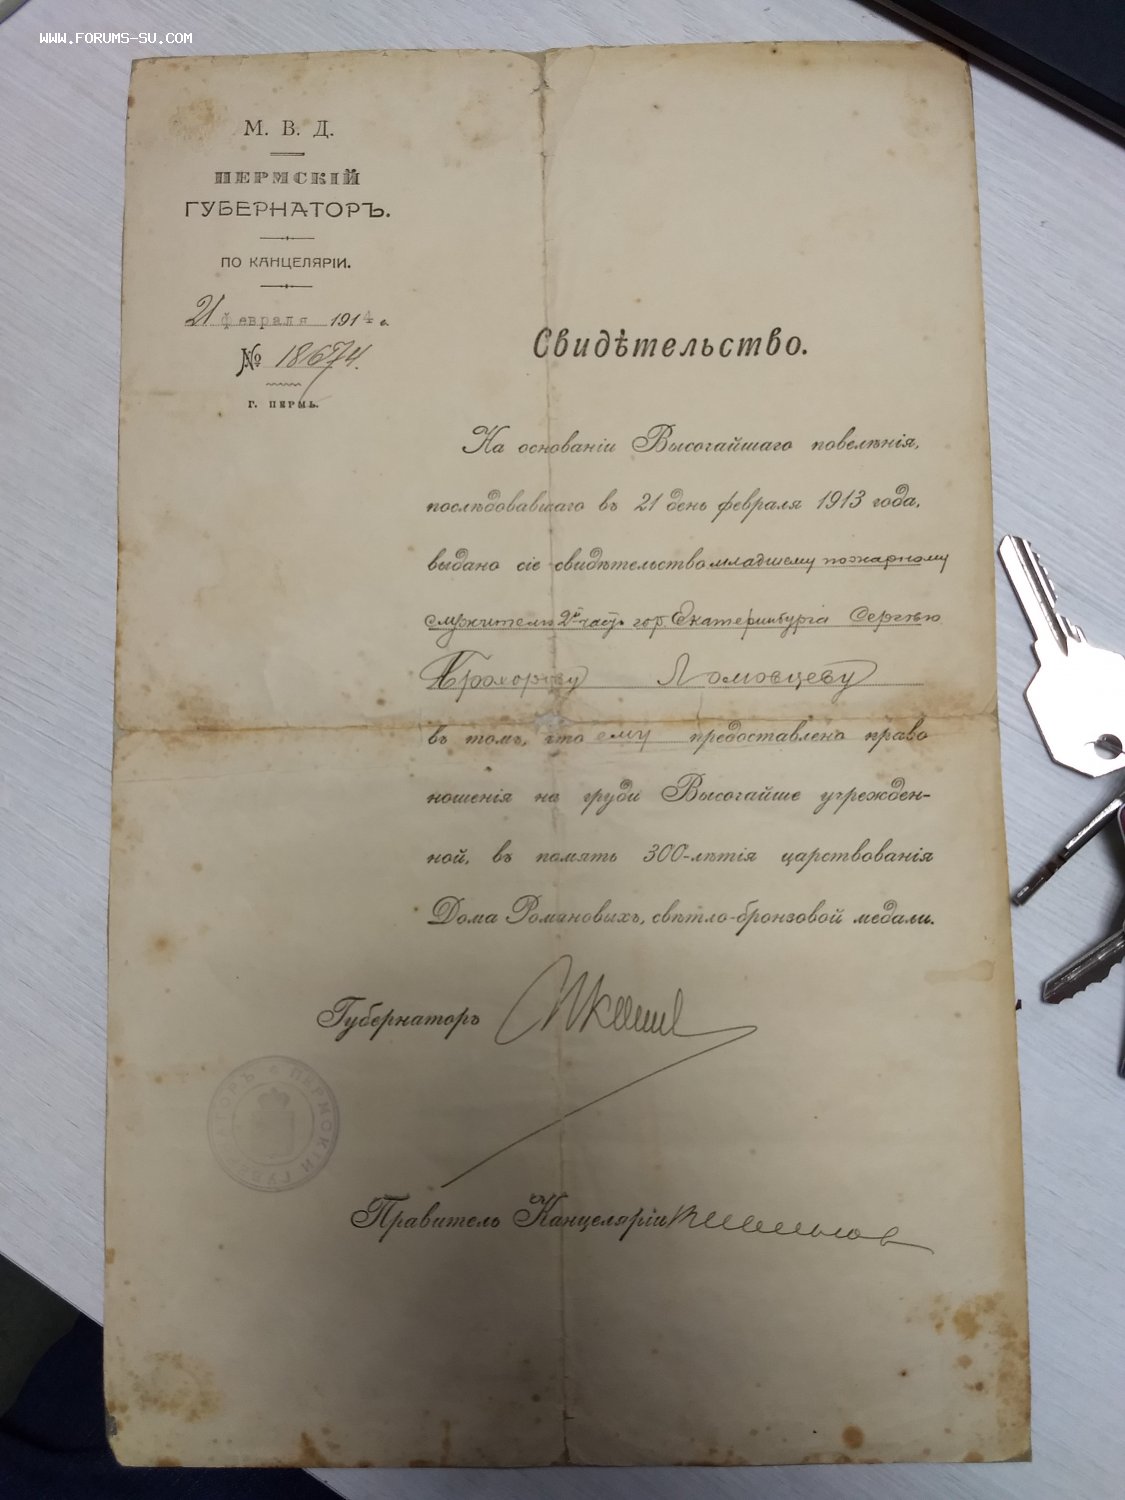 WWW.FORUMS-SU.COM
М. В. Д.
ПЕРМСКІЙ
ГУБЕРНАТОРЪ.
ПО КАНЦЕЛЯРІИ.
21 февраля 1914 г.
№ 18674.
Г. ПЕРМЬ.
Свидѣтельство.
На основаніи Высочайшаго повелѣнія,
послѣдовавшаго въ 21 день февраля 1913 года,
выдано сіе свидѣтельство младшему пожарному
служителю 2й части гор. Екатеринбурга Сергѣю
Прохорову Ломовцеву
въ томъ, что ему предоставлено право
ношенія на груди Высочайше учрежден-
ной, въ память 300-лѣтія царствованія
Дома Романовыхъ, свѣтло-бронзовой медали.
Губернаторъ
ПЕРМСКІЙ ГУБЕРНАТОРЪ
Правитель Канцеляріи